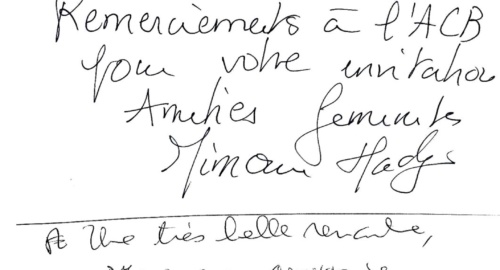 Remerciements à l'ACB
pour votre invitation
Amitiés féministes
Mimoun Hadjs
Une très belle rencontre,